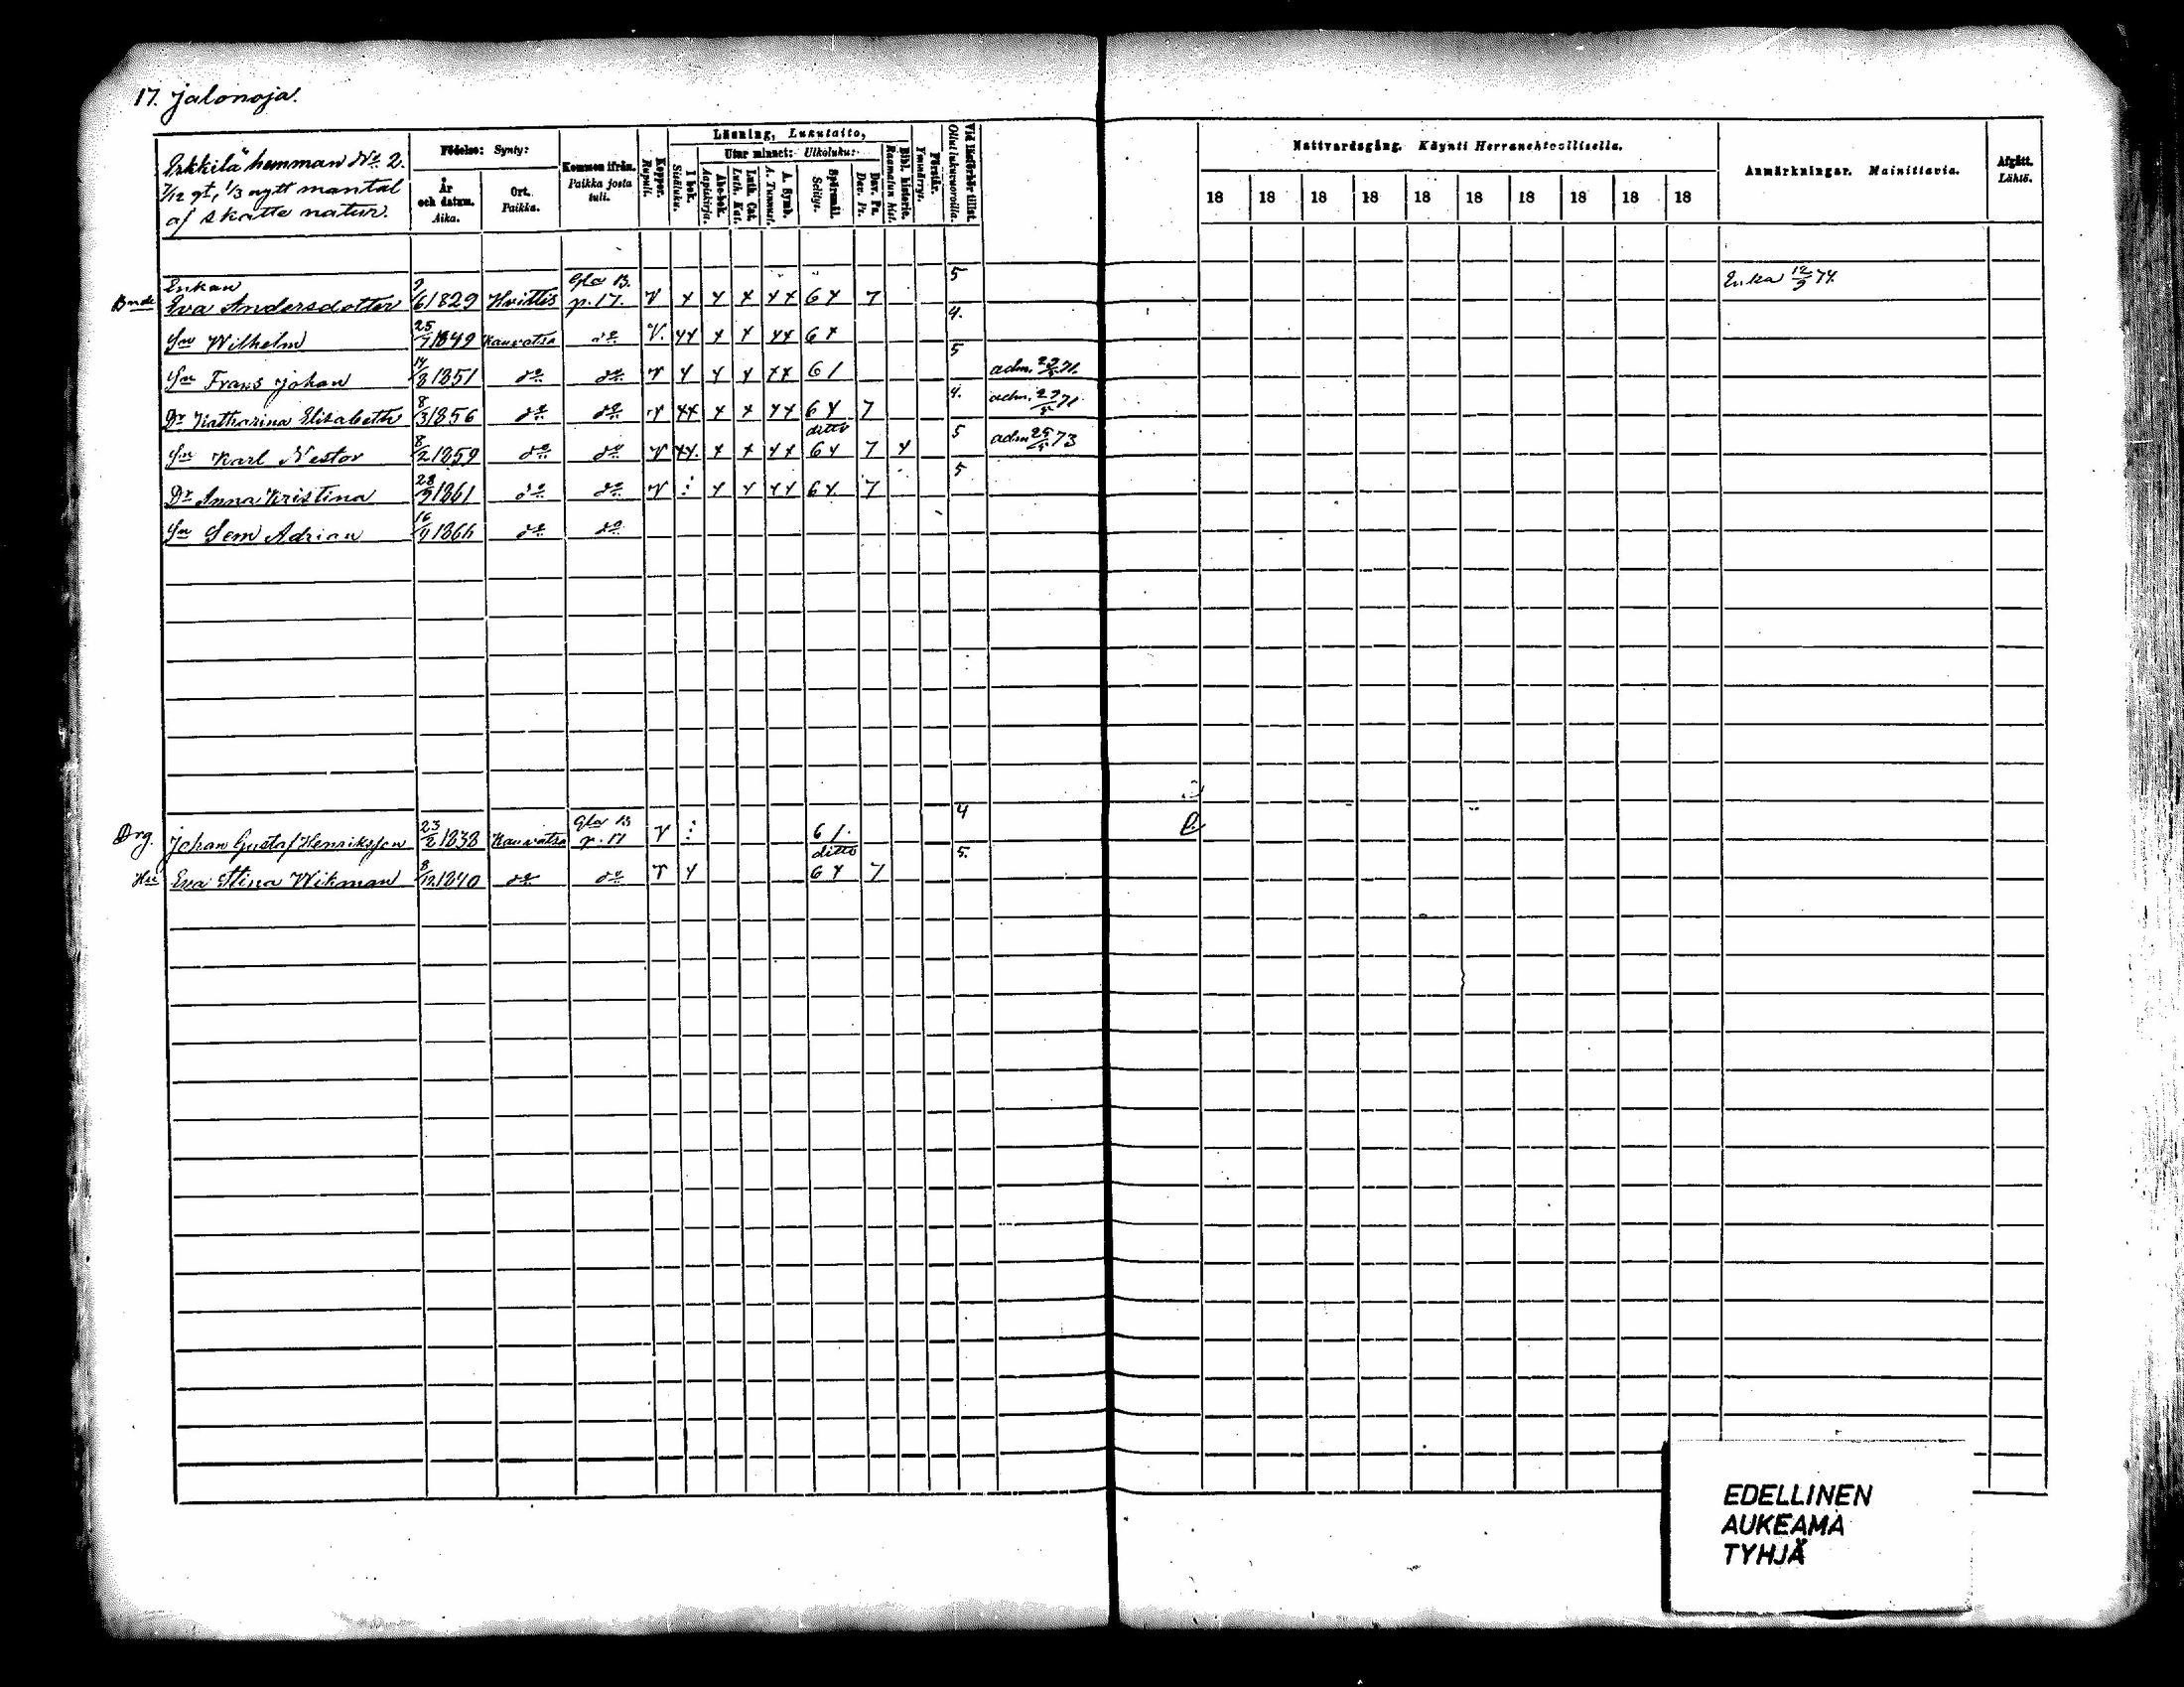 17. Jalonoja.
Erkkilä hemman No 2.
7/12 gt, 1/3 nytt mantal
af skatte natur.
Födelse: Synty:
År och datum. Aika.
Ort. Paikka.
Kommen ifrån. Paikka josta tuli.
Koppor. Rupuli.
Läsning, Lukutaito,
I bok. Sisäluku.
Utur minnet: Ulkoluku:
Abc-bok. Aapiskirja.
Luth. Cat. Luth. Kat.
A. Symb. A. Tunnust.
Spörsmål. Selitys.
Dav. Ps. Dav. Ps.
Bibl. historie. Raamatun hist.
Förstår. Ymmärrys.
Vid läsförhör tillst. Ollut lukuvuoroilla.
Nattvardsgång. Käynti Herranehtoollisella.
18 18 18 18 18 18 18 18 18 18
Anmärkningar. Mainittavia.
Afgått. Lähtö.
Enkan Gla B. 5 Enka 12/9 74.
Bnde Eva Andersdotter 9/6 1829 Hvittis p. 17. v x x x xx 6 x 7
Sn Wilhelm 25/7 1849 Kauvatsa do v. xx x x xx 6 x 4.
Sn Frans Johan 14/8 1851 do do v x x x xx 6 / 5 adm. 27/5 71.
Dr Katharina Elisabeth 8/3 1856 do do v xx x x xx 6 x 7 4. adm. 27/5 71
Sn Karl Nestor 8/2 1859 do do v xx. x x xx ditto 6 x 7 x 5 adm 25/5 73
Dr Anna Kristina 28/9 1861 do do v : x x xx 6 x. 7 5
Sn Sem Adrian 16/9 1866 do do
Drg. Johan Gustaf Henriksson 23/2 1838 Kauvatsa Gla B p. 17 v 6 /. 4
Hu Eva Stina Wikman 8/12 1840 do do v x ditto 6 x 7 5.
EDELLINEN
AUKEAMA
TYHJÄ